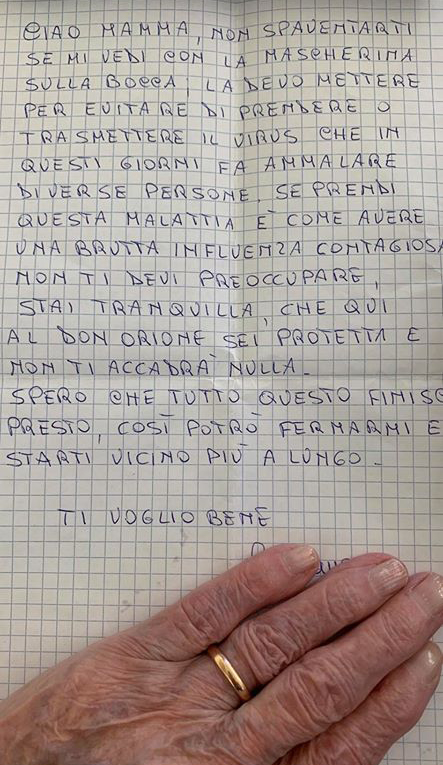 CIAO MAMMA, NON SPAVENTARTI
SE MI VEDI CON LA MASCHERINA
SULLA BOCCA, LA DEVO METTERE
PER EVITARE DI PRENDERE O
TRASMETTERE IL VIRUS CHE IN
QUESTI GIORNI FA AMMALARE
DIVERSE PERSONE. SE PRENDI
QUESTA MALATTIA È COME AVERE
UNA BRUTTA INFLUENZA CONTAGIOSA
NON TI DEVI PREOCCUPARE,
STAI TRANQUILLA, CHE QUI
AL DON ORIONE SEI PROTETTA E
NON TI ACCADRÀ NULLA.
SPERO CHE TUTTO QUESTO FINISC
PRESTO, COSÌ POTRÒ FERMARMI E
STARTI VICINO PIÙ A LUNGO.
TI VOGLIO BENE